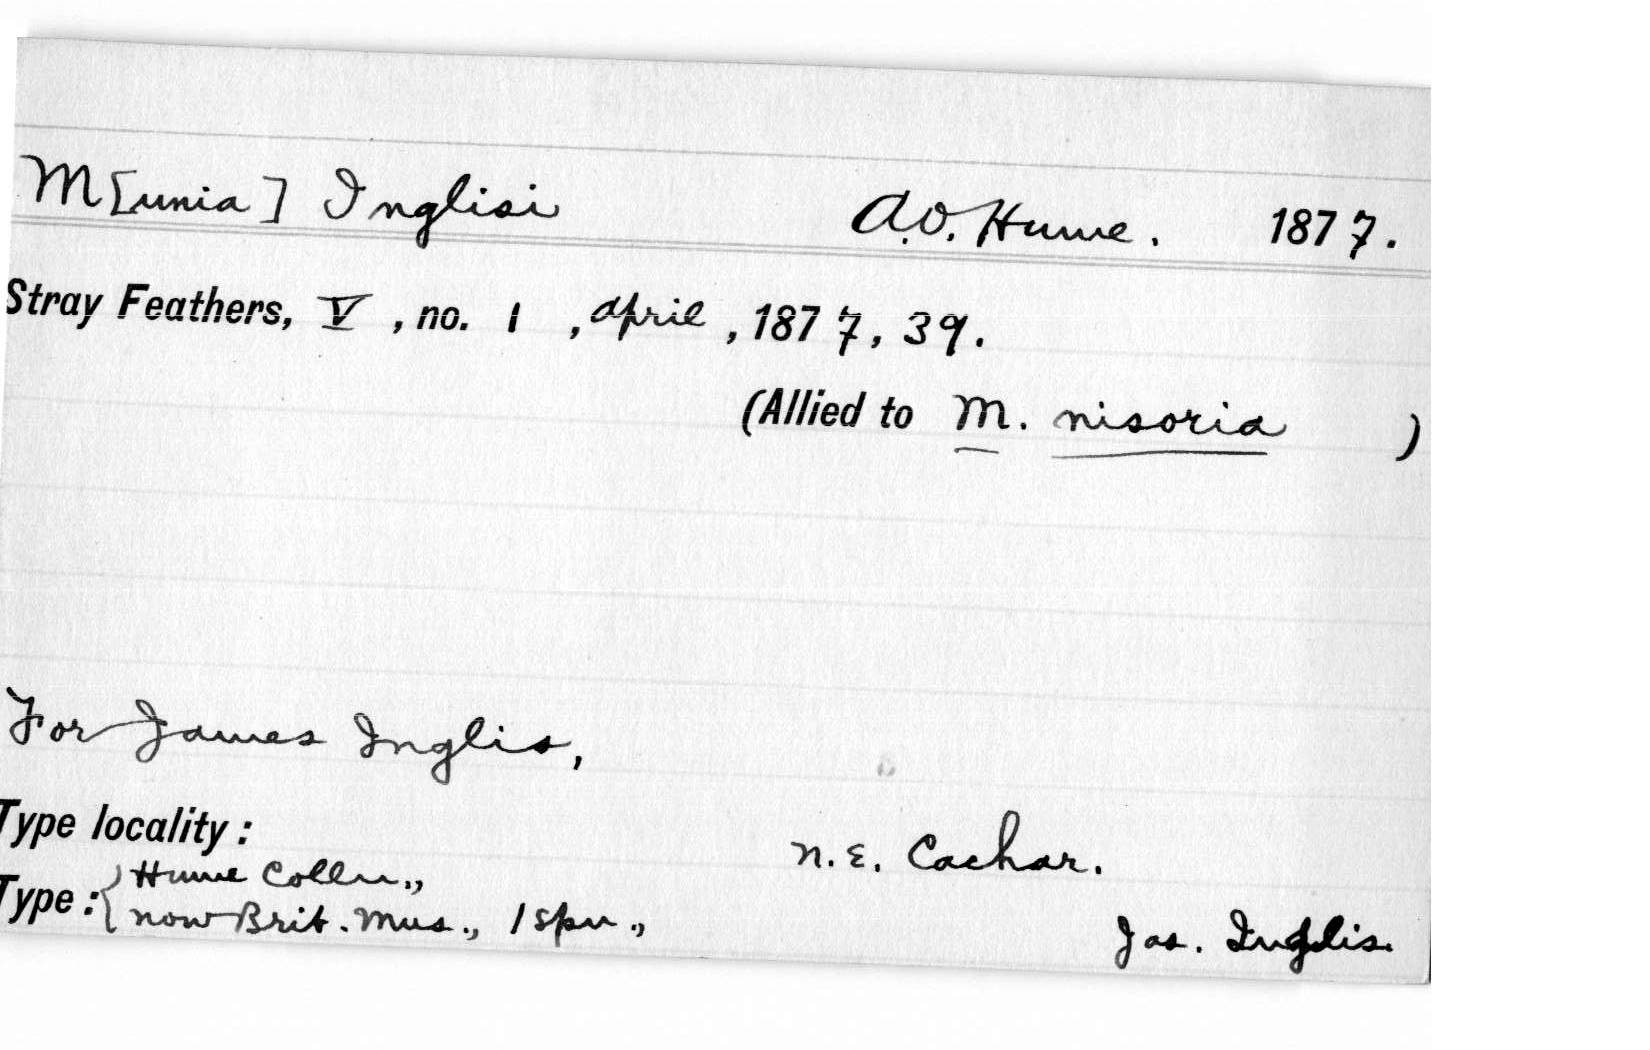 M[unia] Inglisi A.O. Hume. 1877.
Stray Feathers, V, no. 1, April, 1877, 39.
(Allied to M. nisoria )
For James Inglis,
Type locality: N.E. Cachar.
Type: { Hume Colln.,
now Brit. Mus., 1 spn., Jas. Inglis.